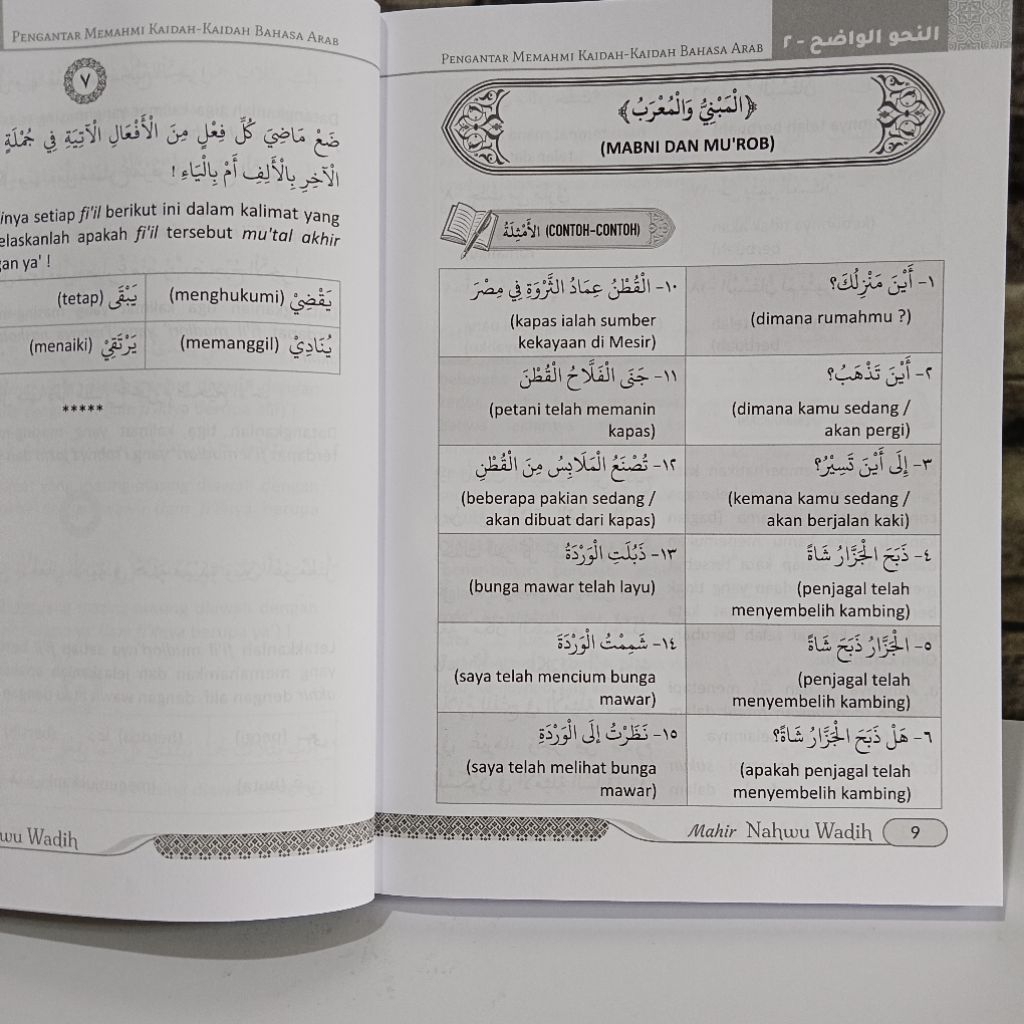 PENGANTAR MEMAHMI KAIDAH-KAIDAH BAHASA ARAB
٧
ضَعْ مَاضِيَ كُلِّ فِعْلٍ مِنَ الْأَفْعَالِ الْآتِيَةِ فِي جُمْلَةٍ
الْآخِرِ بِالْأَلِفِ أَمْ بِالْيَاءِ !
inya setiap fi'il berikut ini dalam kalimat yang
elaskanlah apakah fi'il tersebut mu'tal akhir
gan ya' !
يَقْضِيْ (menghukumi) يَبْقَى (tetap)
يُنَادِيْ (memanggil) يَرْتَقِيْ (menaiki)
*****
wu Wadih
PENGANTAR MEMAHMI KAIDAH-KAIDAH BAHASA ARAB
النحو الواضح - ٢
﴿الْمَبْنِيُّ وَالْمُعْرَبُ﴾
(MABNI DAN MU'ROB)
الْأَمْثِلَةُ (CONTOH-CONTOH)
١- أَيْنَ مَنْزِلُكَ؟
(dimana rumahmu ?)
١٠- الْقُطْنُ عِمَادُ الثَّرْوَةِ فِي مِصْرَ
(kapas ialah sumber
kekayaan di Mesir)
٢- أَيْنَ تَذْهَبُ؟
(dimana kamu sedang /
akan pergi)
١١- جَنَى الْفَلَّاحُ الْقُطْنَ
(petani telah memanin
kapas)
٣- إِلَى أَيْنَ تَسِيْرُ؟
(kemana kamu sedang /
akan berjalan kaki)
١٢- تُصْنَعُ الْمَلَابِسُ مِنَ الْقُطْنِ
(beberapa pakian sedang /
akan dibuat dari kapas)
٤- ذَبَحَ الْجَزَّارُ شَاةً
(penjagal telah
menyembelih kambing)
١٣- ذَبُلَتِ الْوَرْدَةُ
(bunga mawar telah layu)
٥- الْجَزَّارُ ذَبَحَ شَاةً
(penjagal telah
menyembelih kambing)
١٤- شَمِمْتُ الْوَرْدَةَ
(saya telah mencium bunga
mawar)
٦- هَلْ ذَبَحَ الْجَزَّارُ شَاةً؟
(apakah penjagal telah
menyembelih kambing)
١٥- نَظَرْتُ إِلَى الْوَرْدَةِ
(saya telah melihat bunga
mawar)
Mahir Nahwu Wadih 9